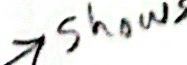 → shows